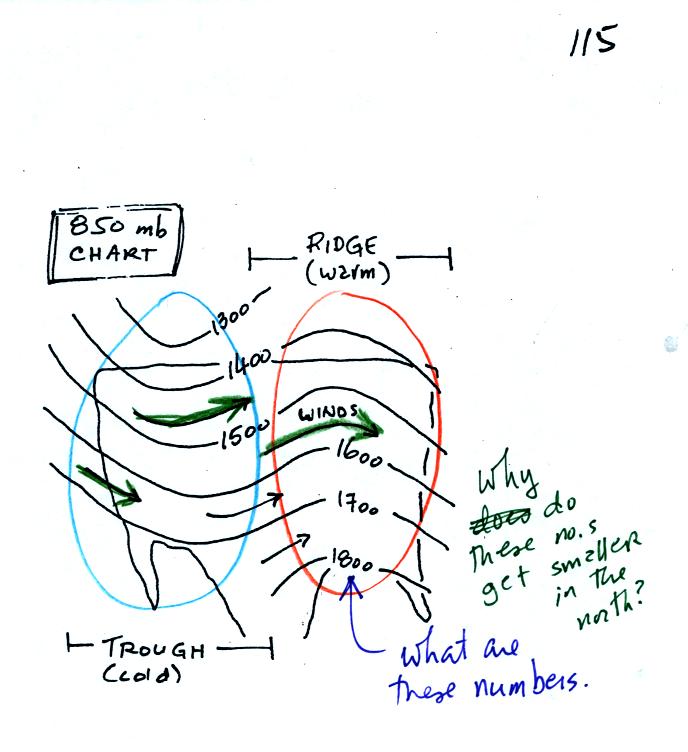 115
850 mb
CHART
RIDGE
(warm)
1300
1400
WINDS
1500
1600
1700
1800
Why
does do
these no.s
get smaller
in the
north?
TROUGH
(cold)
what are
these numbers.